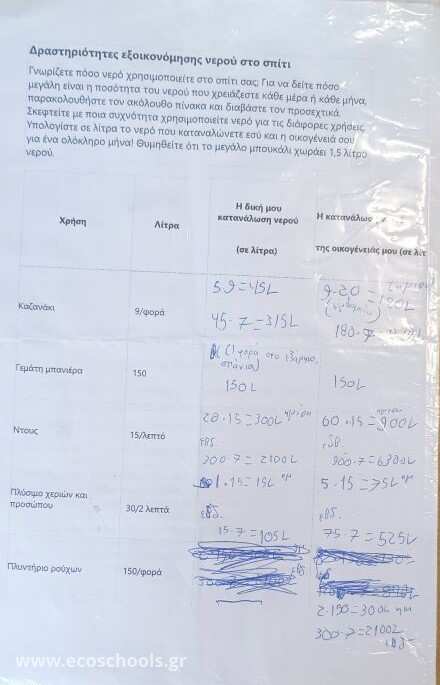 Δραστηριότητες εξοικονόμησης νερού στο σπίτι
Γνωρίζετε πόσο νερό χρησιμοποιείτε στο σπίτι σας; Για να δείτε πόσο
μεγάλη είναι η ποσότητα του νερού που χρειάζεστε κάθε μέρα ή κάθε μήνα,
παρακολουθήστε τον ακόλουθο πίνακα και διαβάστε τον προσεχτικά.
Σκεφτείτε με ποια συχνότητα χρησιμοποιείτε νερό για τις διάφορες χρήσεις.
Υπολογίστε σε λίτρα το νερό που καταναλώνετε εσύ και η οικογένειά σου
για ένα ολόκληρο μήνα! Θυμηθείτε ότι το μεγάλο μπουκάλι χωράει 1,5 λίτρο
νερού.
Χρήση
Λίτρα
Η δική μου
κατανάλωση νερού
(σε λίτρα)
Η κατανάλωσ
της οικογένειάς μου (σε λίτ
Καζανάκι
9/φορά
5.9=45L
45.7=315L
9.20=180L
180.7=
Γεμάτη μπανιέρα
150
(1 φορά στο εξάμηνο,
σπάνια)
150L
150L
Ντους
15/λεπτό
20.15=300L ημέρα
εβδ.
300.7=2100L
60.15=900L
εβδ
900.7=6300L
Πλύσιμο χεριών και
προσώπου
30/2 λεπτά
1.15=15L ημ
εβδ.
15.7=105L
5.15=75L ημ
εβδ.
75.7=525L
Πλυντήριο ρούχων
150/φορά
2.150=300L ημ
300.7=2100L
εβδ
www.ecoschools.gr